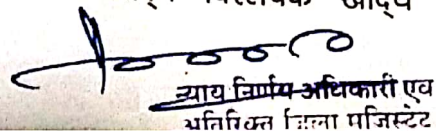 खाद्य
न्याय निर्णय अधिकारी एवं
अतिरिक्त जिला मजिस्ट्रेट